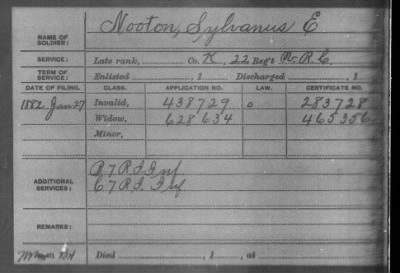 NAME OF SOLDIER: Nooton, Sylvanus E
SERVICE: Late rank, Co. K, 22 Reg't V. R. C.
TERM OF SERVICE: Enlisted , 1 Discharged , 1
DATE OF FILING. CLASS. APPLICATION NO. LAW. CERTIFICATE NO.
1882 Jan 27 Invalid, 438729 o 283728
Widow, 628634 465356
Minor,
ADDITIONAL SERVICES: B 7 R.I. Inf
C 7 R.I. Inf
REMARKS:
Died , 1 , at